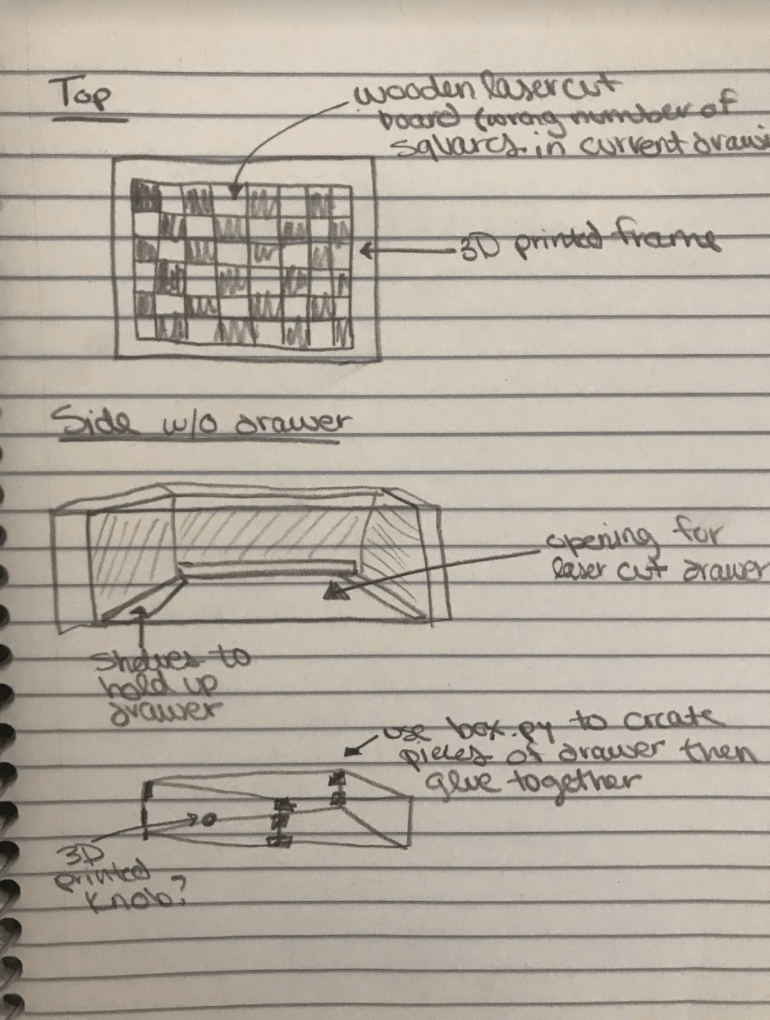 Top
wooden laser cut
board (wrong number of
squares in current drawi
3D printed frame
Side w/o drawer
opening for
laser cut drawer
shelves to
hold up
drawer
use box.py to create
pieces of drawer then
glue together
3D
printed
knob?